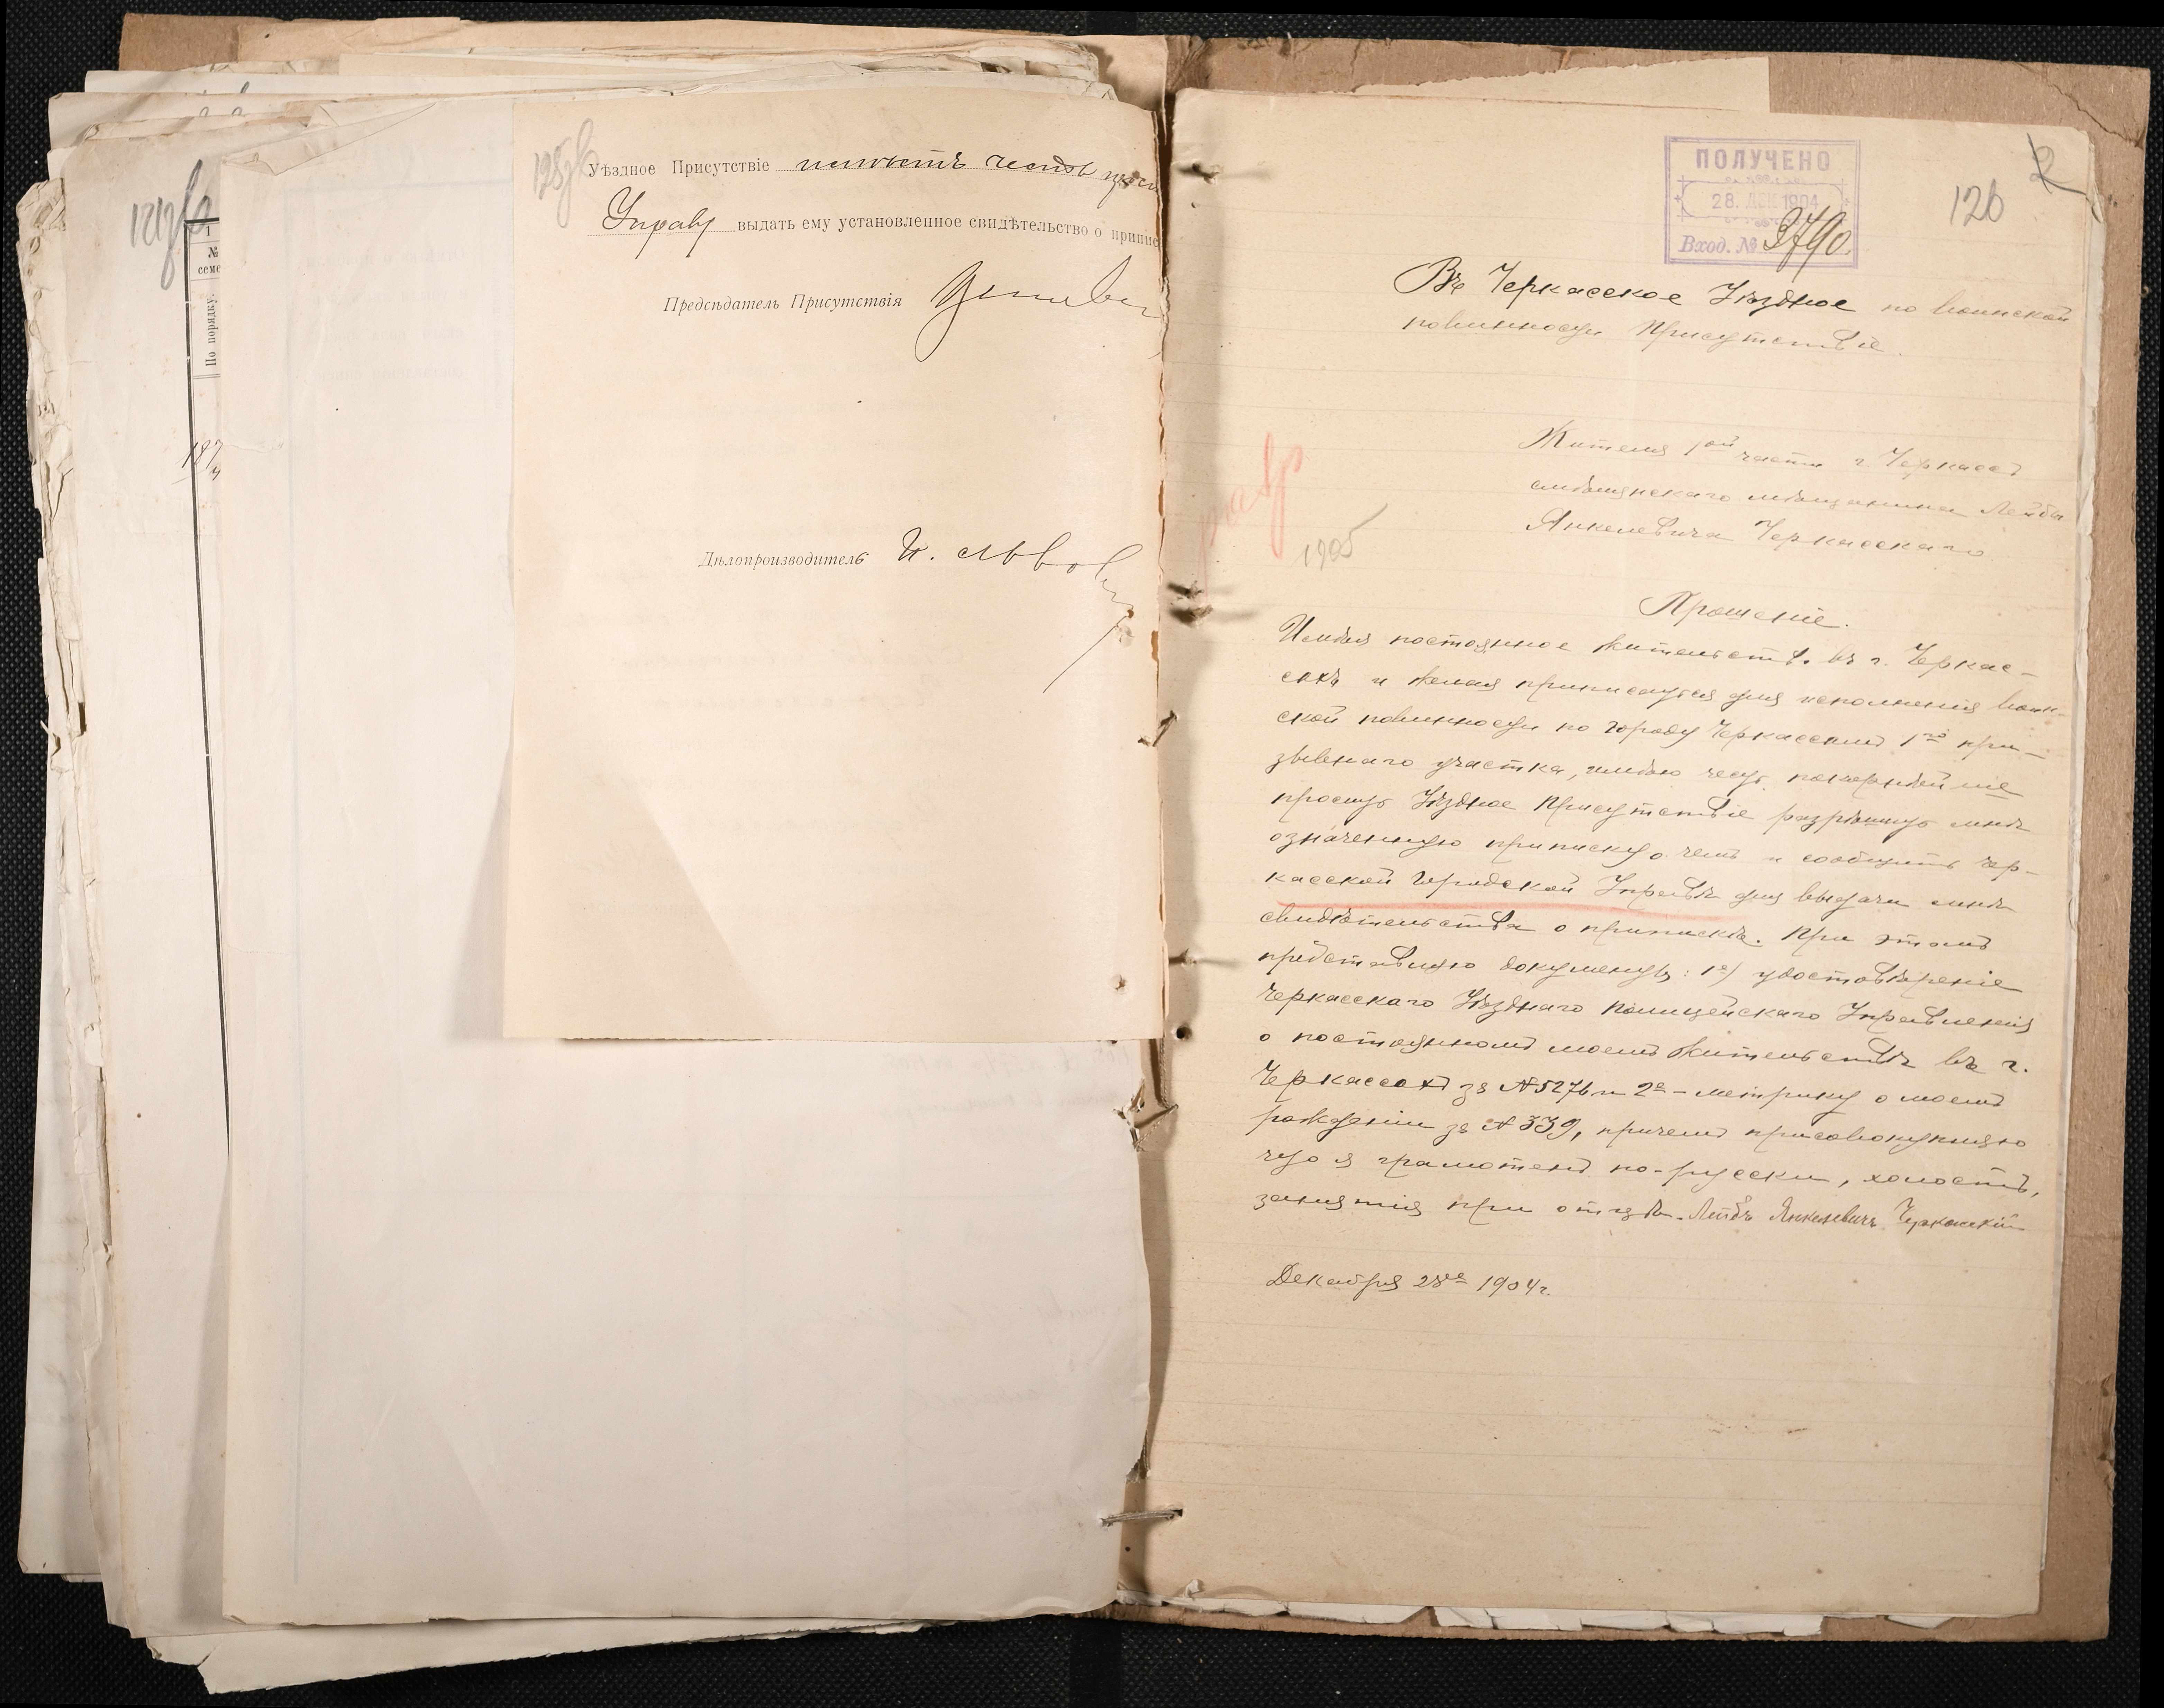 Уѣздное Присутствіе имѣетъ честь
Управу выдать ему установленное свидѣтельство о припис
Предсѣдатель Присутствія
Дѣлопроизводитель
1
№
семе
По порядку.
ПОЛУЧЕНО
28. ДЕК 1904
Вход. № 3790.
126
2
Въ Черкасское Уѣздное по воинской
повинности Присутствіе.
Жителя 1ой части г. Черкассъ
смѣлянскаго мѣщанина Лейбы
Янкелевича Черкасскаго
1905
Прошеніе.
Имѣя постоянное жительство въ г. Черкас-
сахъ и желая приписаться для исполненія воин-
ской повинности по городу Черкассамъ 1го при-
зывнаго участка, имѣю честь покорнѣйше
просить Уѣздное Присутствіе разрѣшить мнѣ
означенную приписку о чемъ и сообщить Чер-
касской Городской Управѣ для выдачи мнѣ
свидѣтельства о припискѣ. При этомъ
представляю документы: 1е) удостовѣреніе
Черкасскаго Уѣзднаго Полицейскаго Управленія
о постоянномъ моемъ жительствѣ въ г.
Черкассахъ за №5276 и 2е - метрику о моемъ
рожденіи за № 339, причемъ присовокупляю
что я грамотенъ по-русски, холостъ,
занятія при отцѣ. Лейба Янкелевичъ Черкасскій
Декабря 28го 1904г.